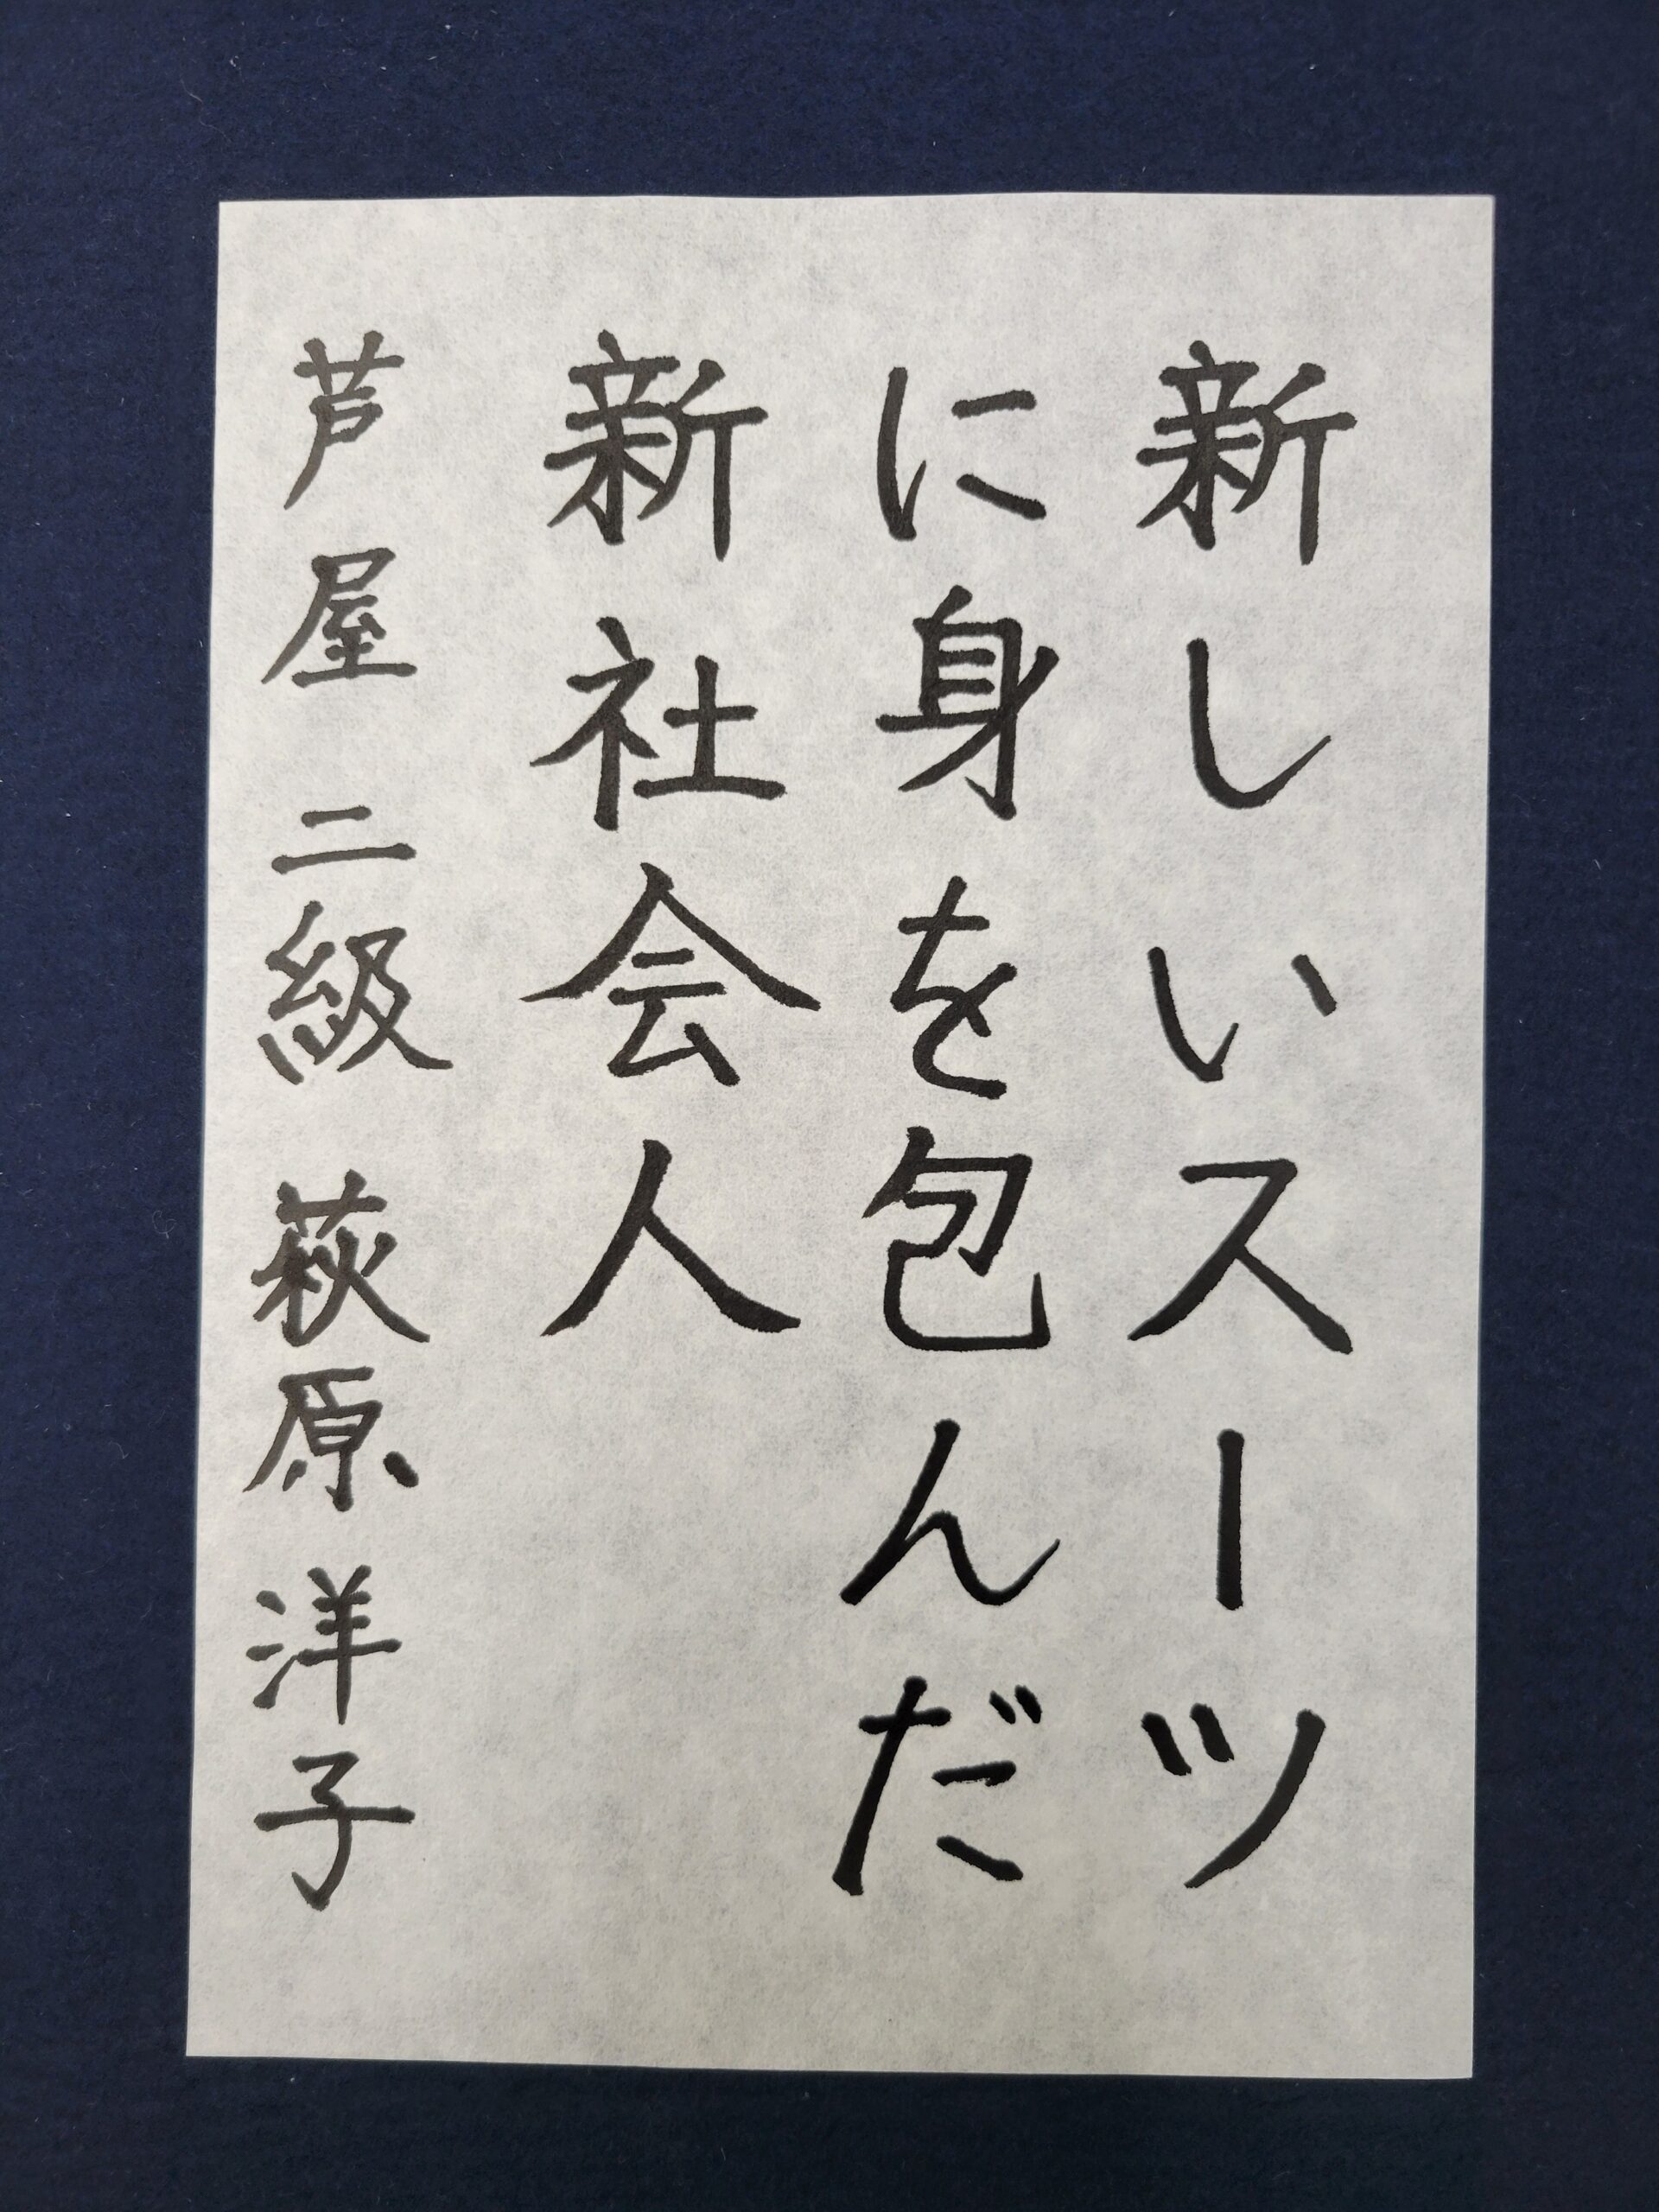 新しいスーツ
に身を包んだ
新社会人
芦屋 二級 萩原洋子